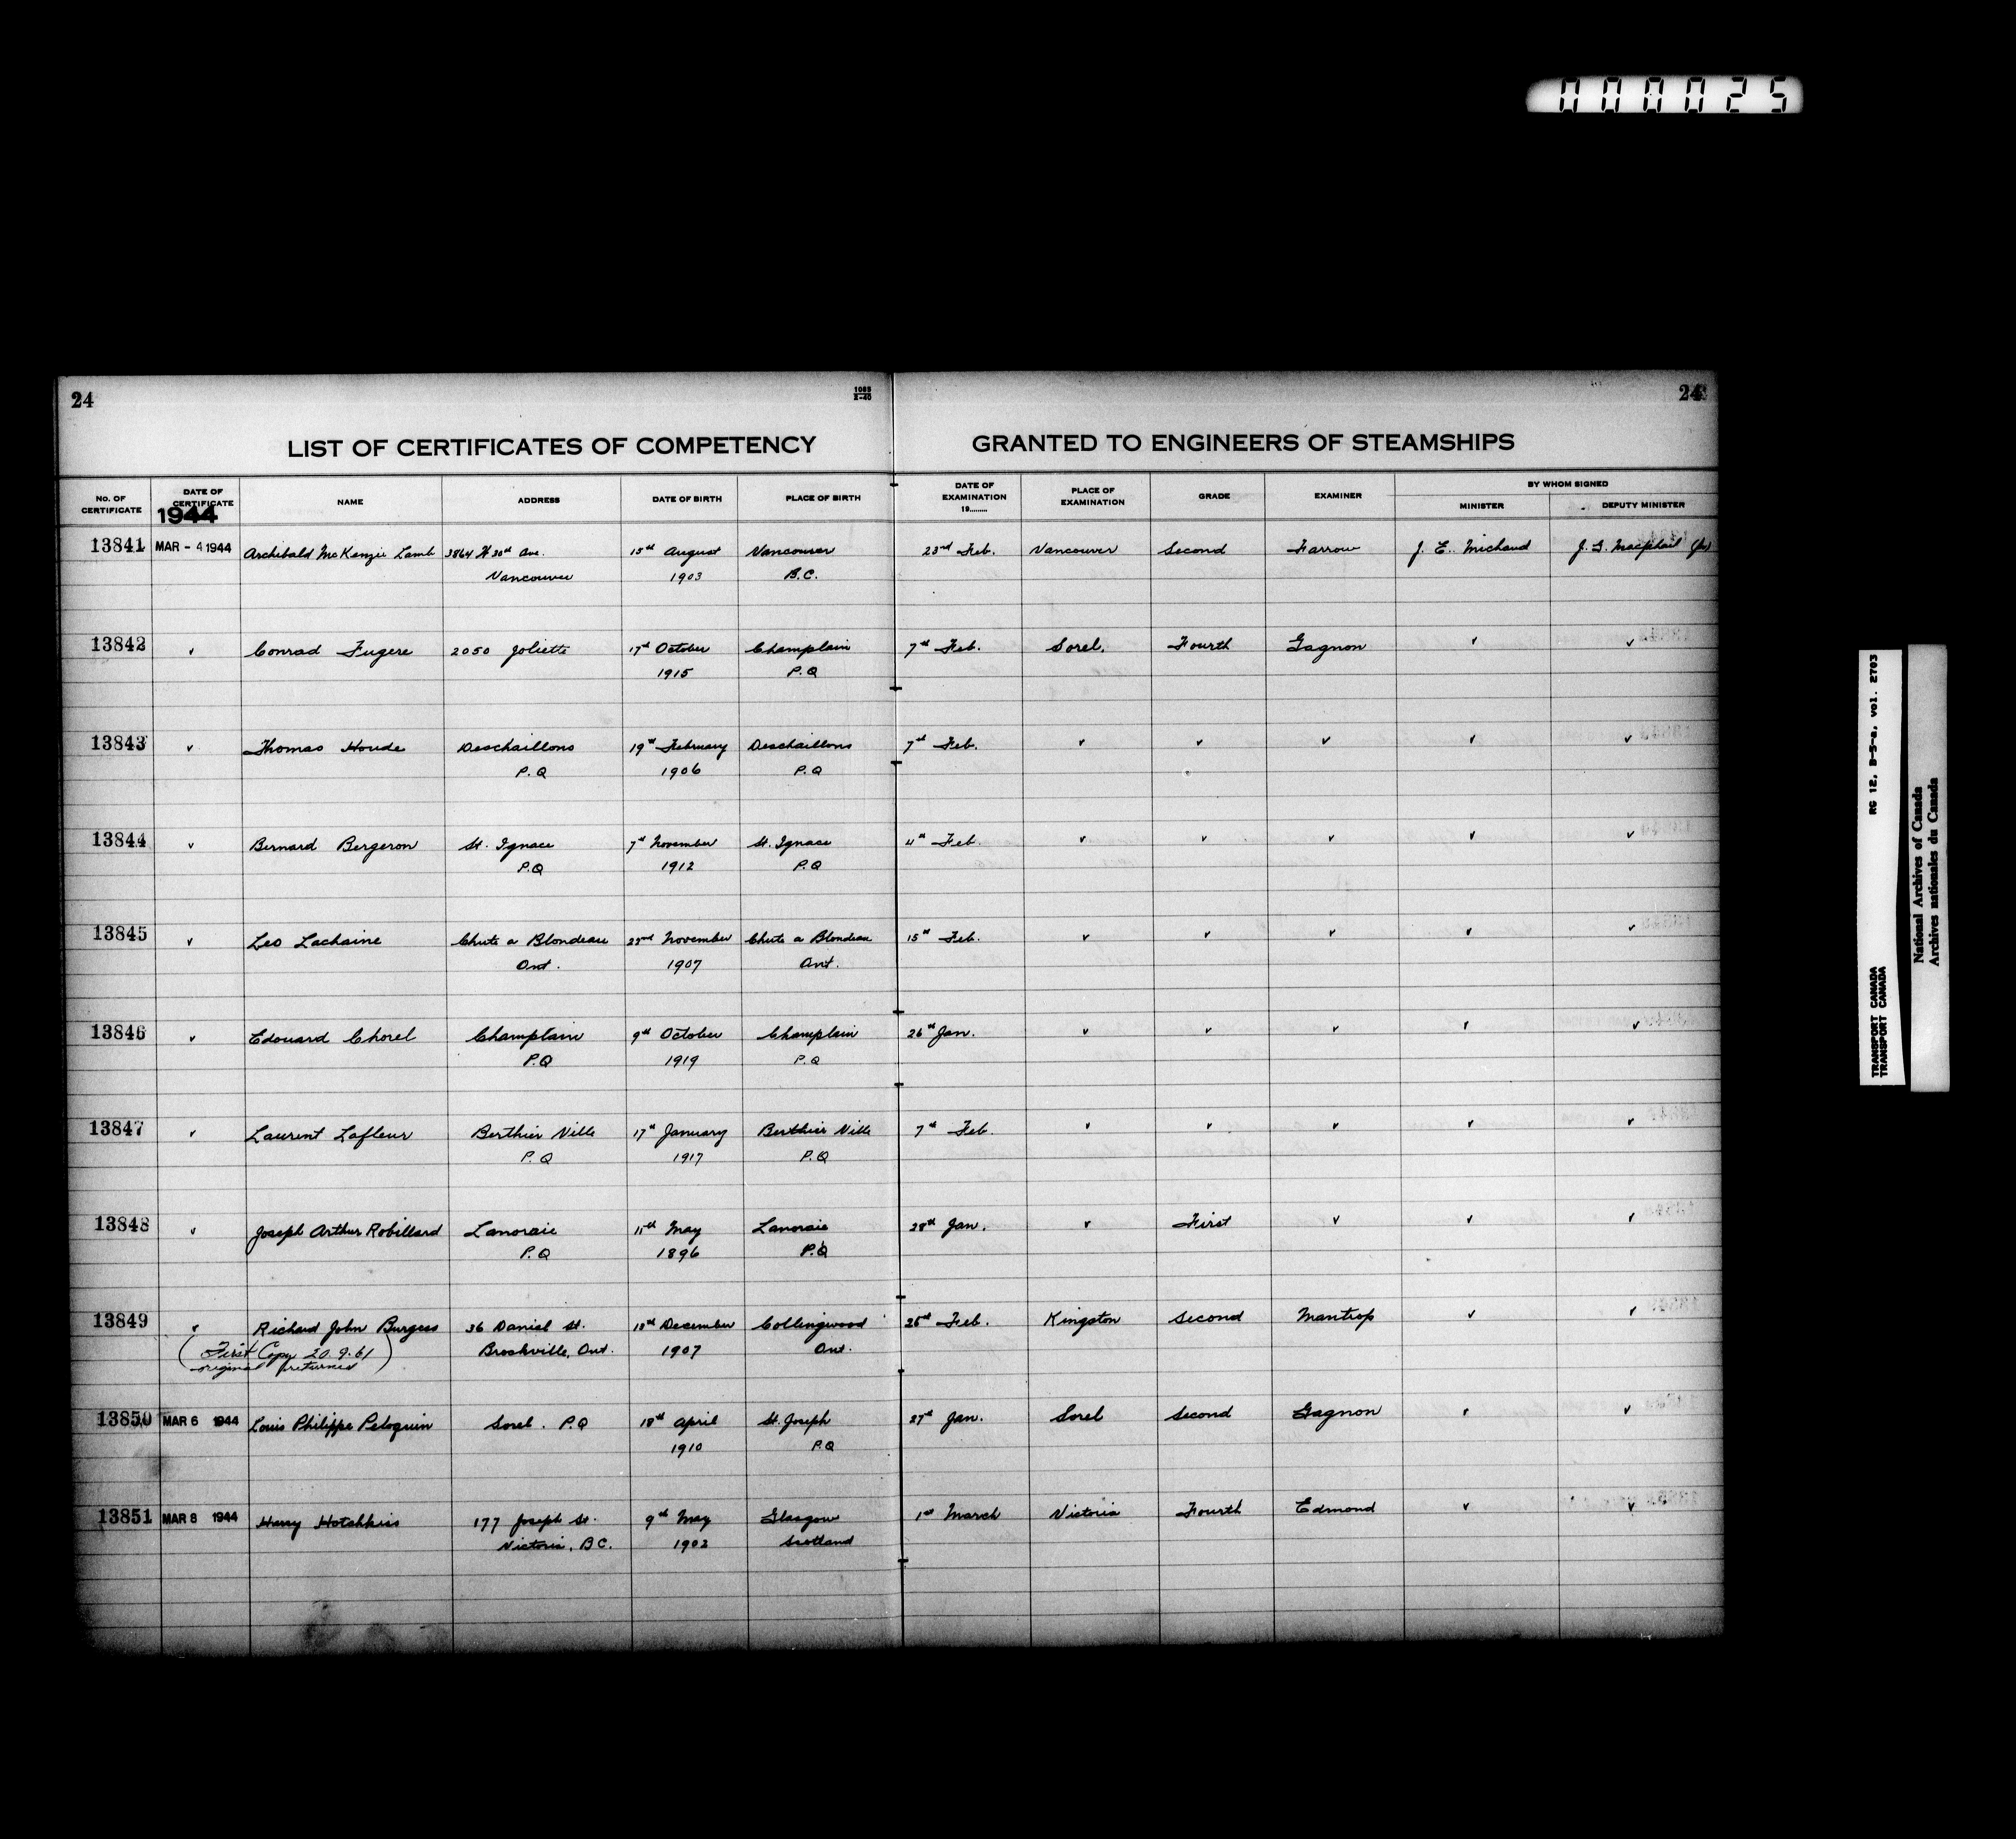 000025
24
1085
E-40
24
LIST OF CERTIFICATES OF COMPETENCY GRANTED TO ENGINEERS OF STEAMSHIPS
No. OF CERTIFICATE DATE OF CERTIFICATE NAME ADDRESS DATE OF BIRTH PLACE OF BIRTH DATE OF EXAMINATION 19........ PLACE OF EXAMINATION GRADE EXAMINER BY WHOM SIGNED MINISTER DEPUTY MINISTER
1944
13841 MAR - 4 1944 Archibald McKenzie Lamb 3864 W 30th Ave. 15th August Vancouver 23rd Feb. Vancouver Second Farrow J. E. Michaud J. G. Macphail
Vancouver 1903 B.C.
13842 ✓ Conrad Fugere 2050 Joliette 17th October Champlain 7th Feb. Sorel. Fourth Gagnon ✓ ✓
1915 P.Q
13843 ✓ Thomas Houde Deschaillons 19th February Deschaillons 7th Feb. ✓ ✓ ✓ ✓ ✓
P.Q 1906 P.Q
13844 ✓ Bernard Bergeron St. Ignace 7th November St. Ignace 4th Feb. ✓ ✓ ✓ ✓ ✓
P.Q 1912 P.Q
13845 ✓ Leo Lachaine Chute a Blondeau 22nd November Chute a Blondeau 15th Feb. ✓ ✓ ✓ ✓ ✓
Ont. 1907 Ont.
13846 ✓ Edouard Chorel Champlain 9th October Champlain 26th Jan. ✓ ✓ ✓ ✓ ✓
P.Q 1919 P.Q
13847 ✓ Laurent Lafleur Berthier Ville 17th January Berthier Ville 7th Feb. ✓ ✓ ✓ ✓ ✓
P.Q 1917 P.Q
13848 ✓ Joseph Arthur Robillard Lanoraie 11th May Lanoraie 28th Jan. ✓ First ✓ ✓ ✓
P.Q 1896 P.Q
13849 ✓ Richard John Burgess 36 Daniel St. December Collingwood 25th Feb. Kingston Second Mantrop ✓ ✓
(First Copy 20.9.61 Brockville, Ont. 1907 Ont.
original returned)
13850 MAR 6 1944 Louis Philippe Peloquin Sorel. P.Q 18th April St. Joseph 27th Jan. Sorel Second Gagnon ✓ ✓
1910 P.Q
13851 MAR 8 1944 Harry Hotchkiss 177 Joseph St. 9th May Glasgow 1st March Victoria Fourth Edmond ✓ ✓
Victoria, B.C. 1902 Scotland
RG 12, B-5-a, vol. 2703
TRANSPORT CANADA
TRANSPORT CANADA
National Archives of Canada
Archives nationales du Canada